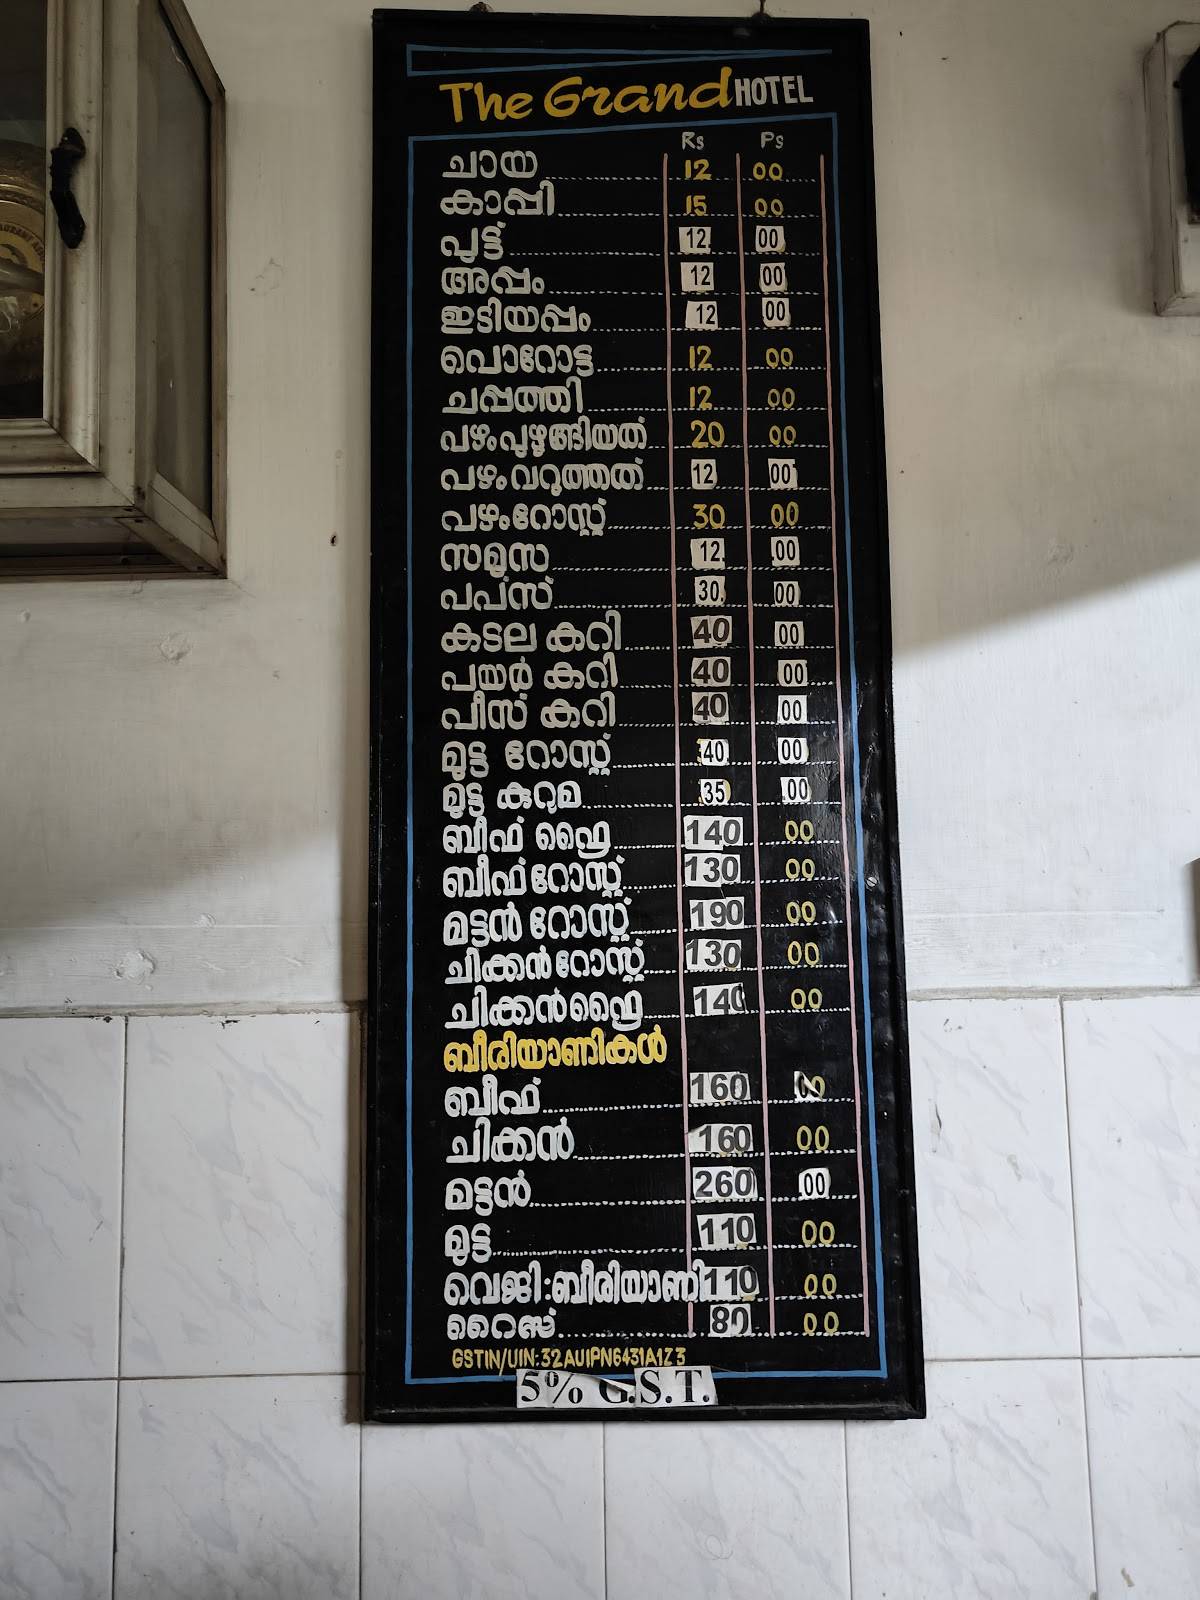 The Grand HOTEL
Rs Ps
ചായ 12 00
കാപ്പി 15 00
പുട്ട് 12 00
അപ്പം 12 00
ഇടിയപ്പം 12 00
പൊറോട്ട 12 00
ചപ്പത്തി 12 00
പഴംപുഴുങ്ങിയത് 20 00
പഴംവറുത്തത് 12 00
പഴംറോസ്റ്റ് 30 00
സമൂസ 12 00
പപ്സ് 30 00
കടല കറി 40 00
പയർ കറി 40 00
പീസ് കറി 40 00
മുട്ട റോസ്റ്റ് 40 00
മുട്ട കുറുമ 35 00
ബീഫ് ഫ്രൈ 140 00
ബീഫ് റോസ്റ്റ് 130 00
മട്ടൻ റോസ്റ്റ് 190 00
ചിക്കൻ റോസ്റ്റ് 130 00
ചിക്കൻ ഫ്രൈ 140 00
ബീരിയാണികൾ
ബീഫ് 160 00
ചിക്കൻ 160 00
മട്ടൻ 260 00
മുട്ട 110 00
വെജി:ബീരിയാണി 110 00
റൈസ് 80 00
GSTIN/UIN:32AUIPN6431A1Z3
5% G.S.T.